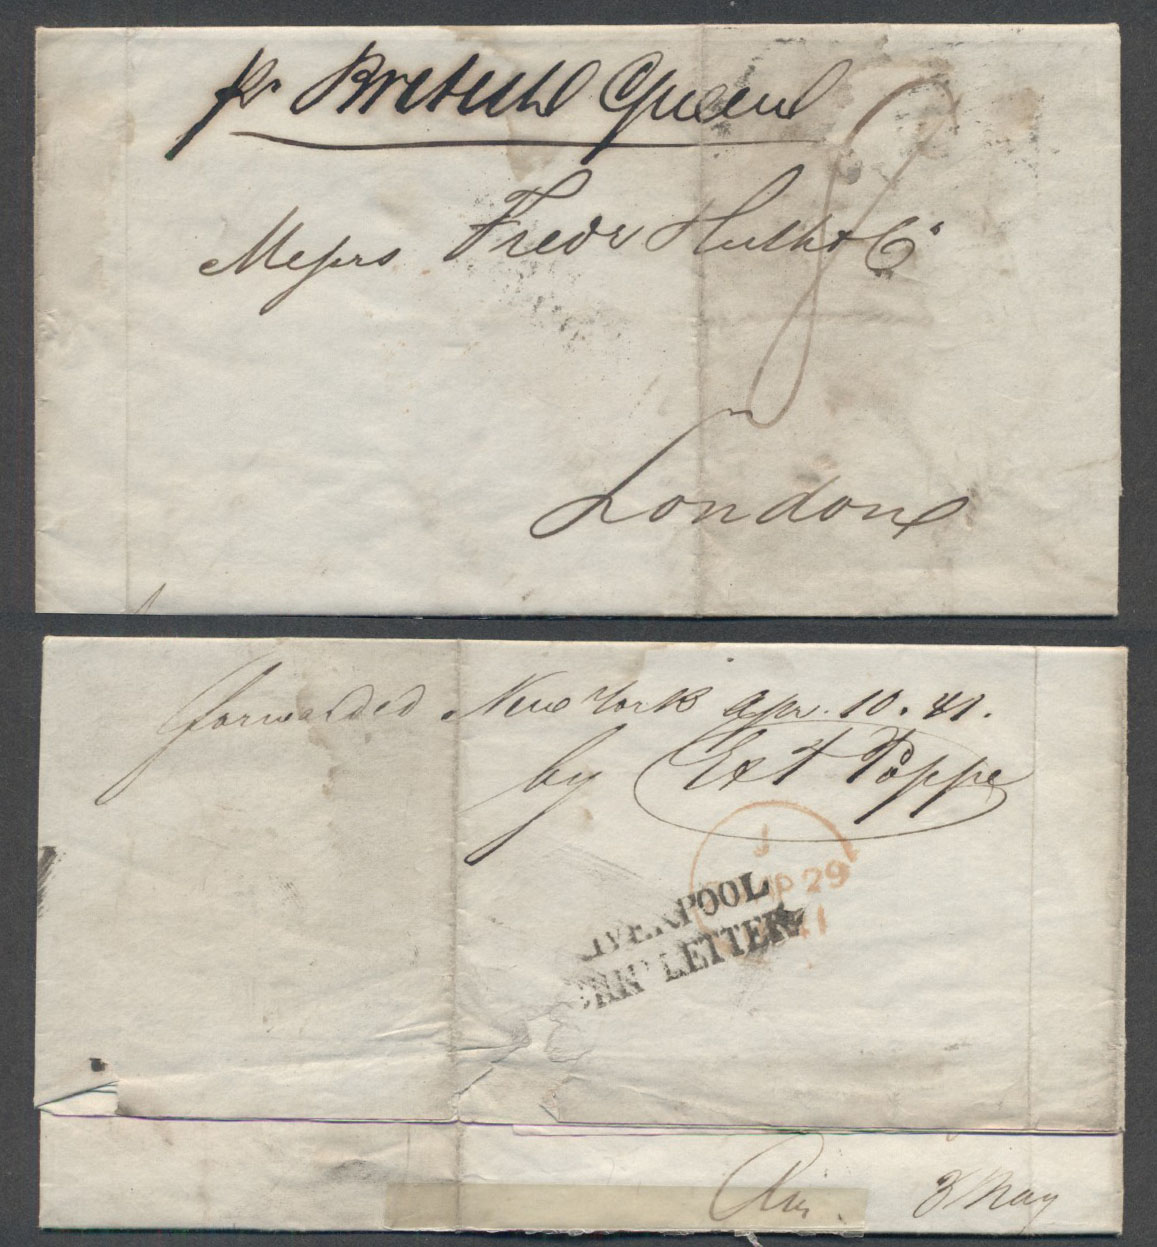 pr British Queen
Messrs Fredk Huth & Co
8
London
forwarded New York Apr. 10. 41.
by E & A Poppe
29
41
LIVERPOOL
SHIP LETTER
3 May